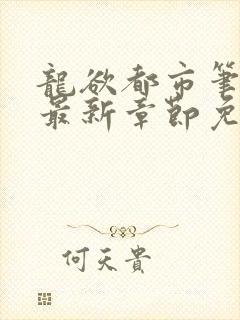 龍欲都市筆
最新章節免
何天貴